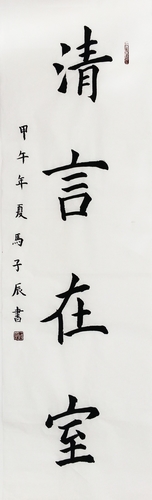 清言在室
甲午年夏馬子辰書